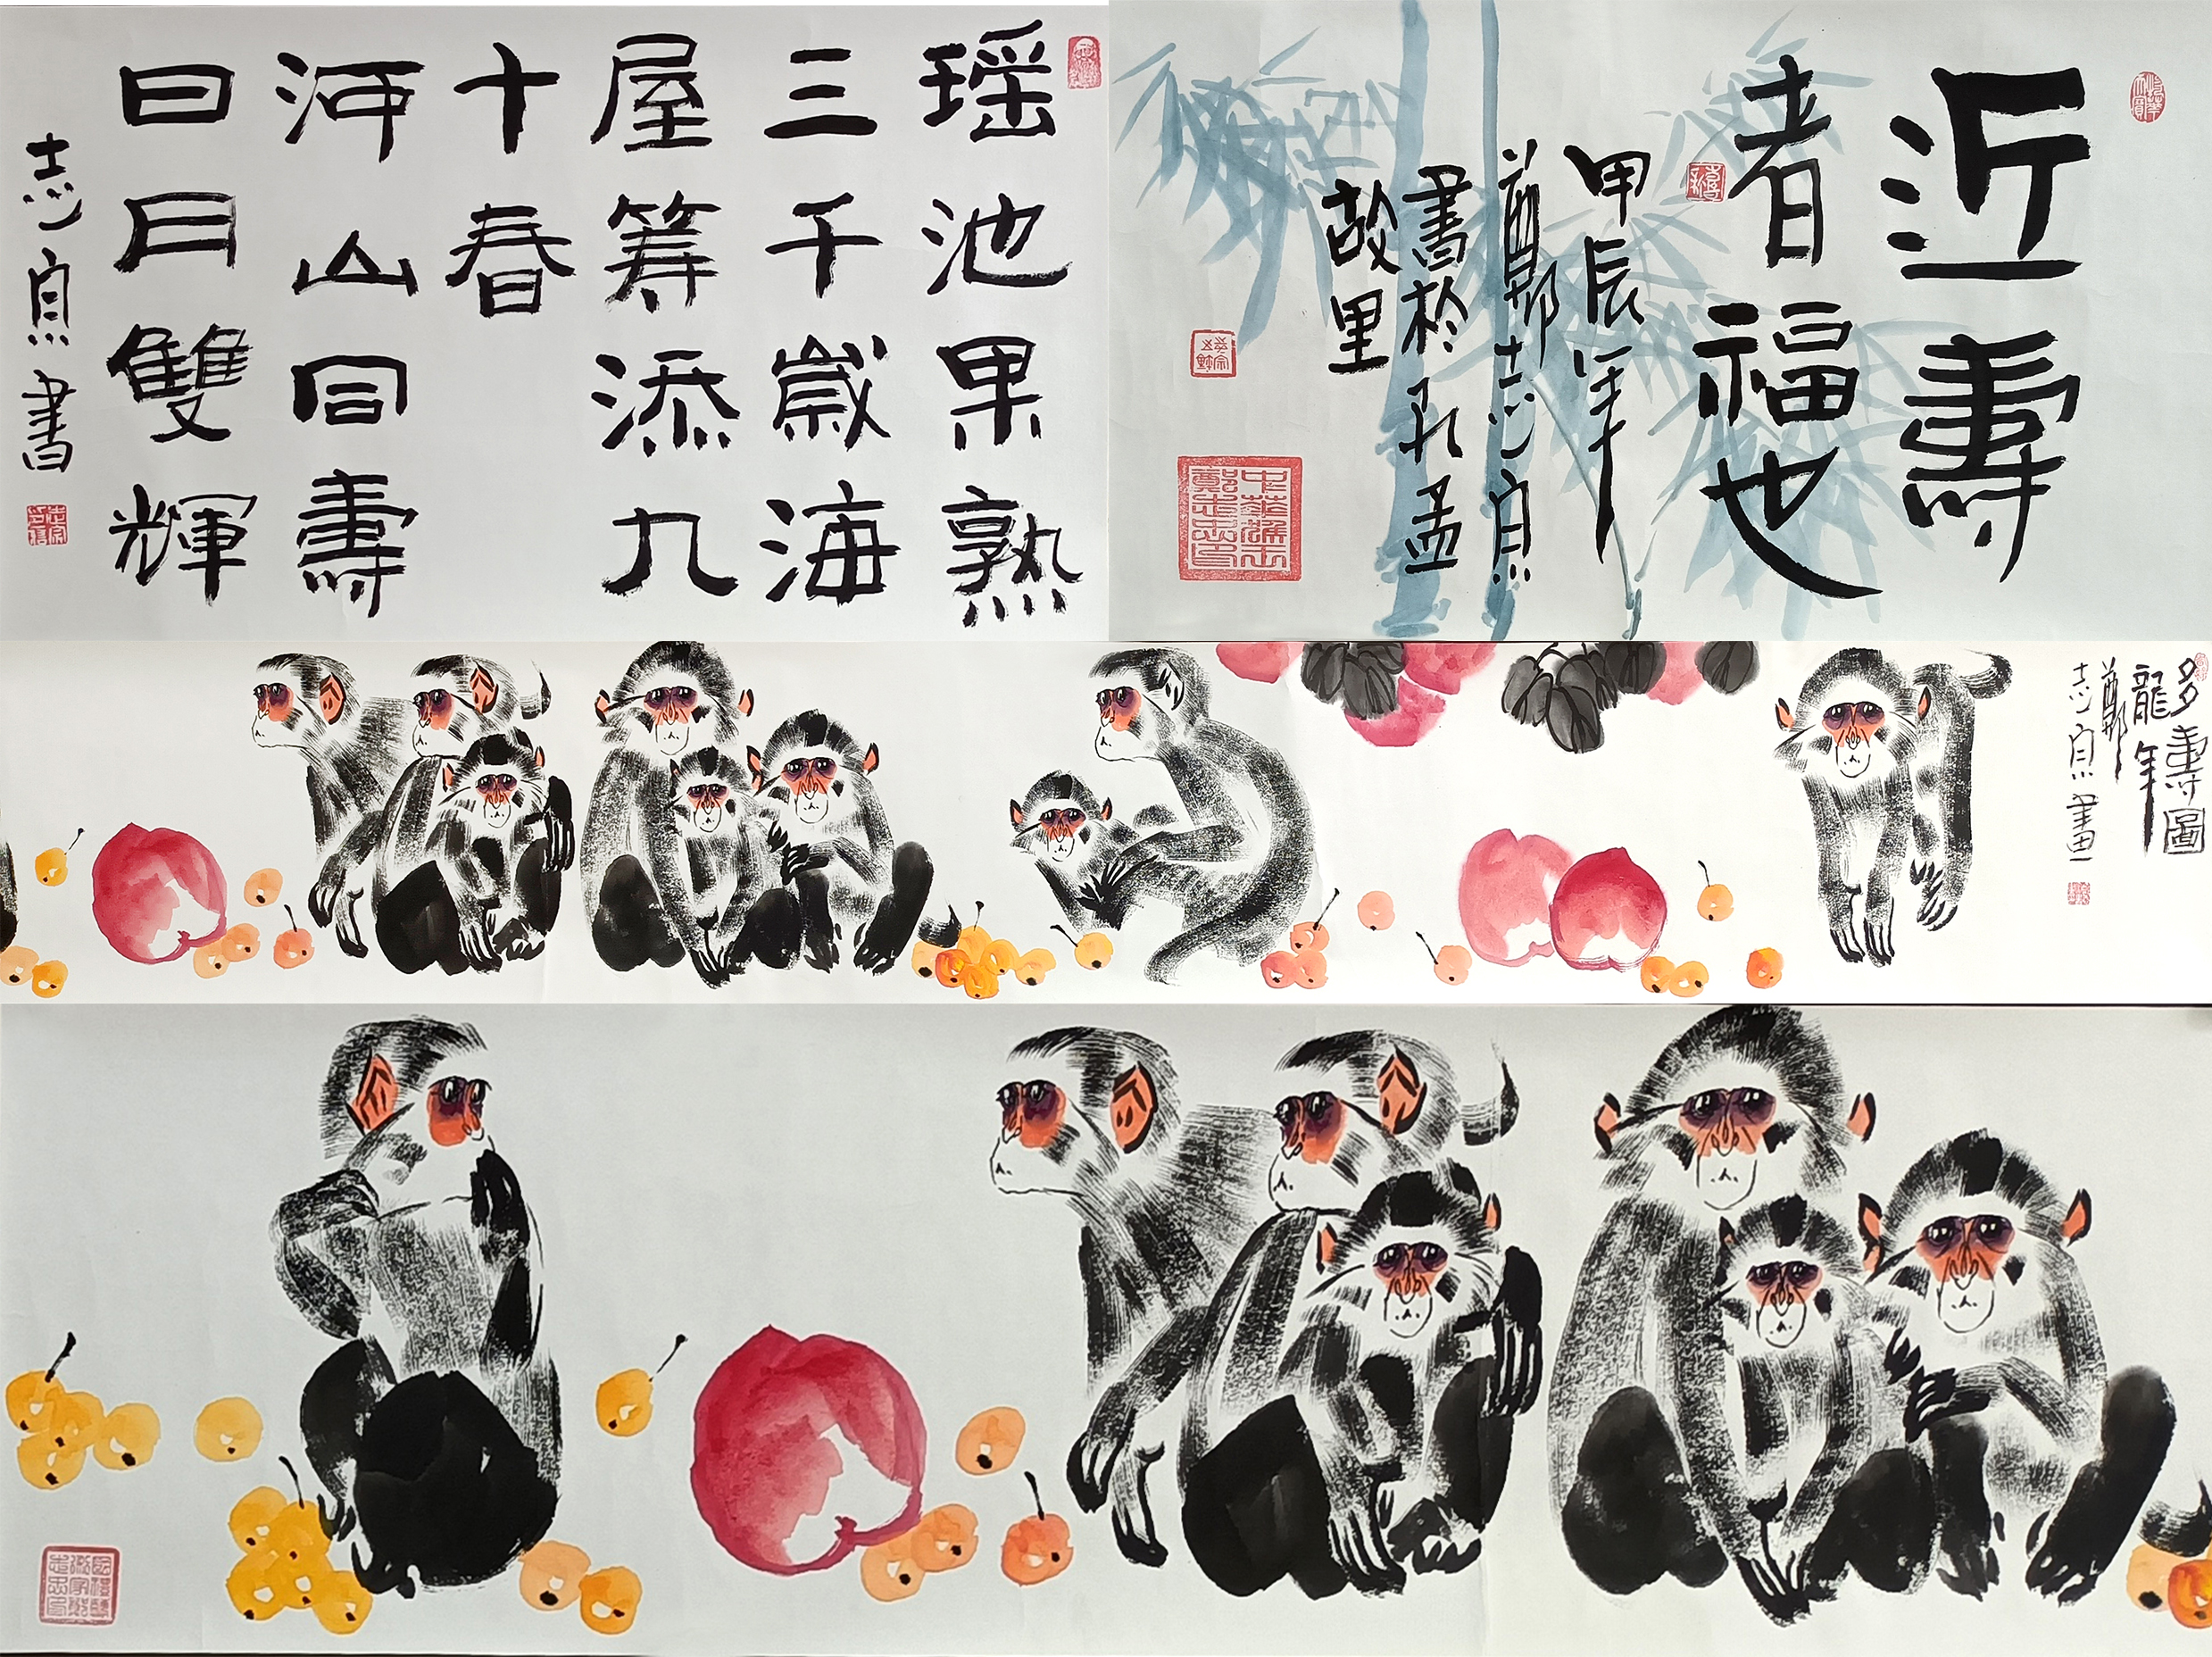 近壽
者福也
甲辰年
鄭志貞
書於孔孟
故里
瑶池果熟
三千歲海
屋筹添九
十春
河山同壽
日月雙輝
志貞書
多壽圖
龍年
鄭
志貞畫